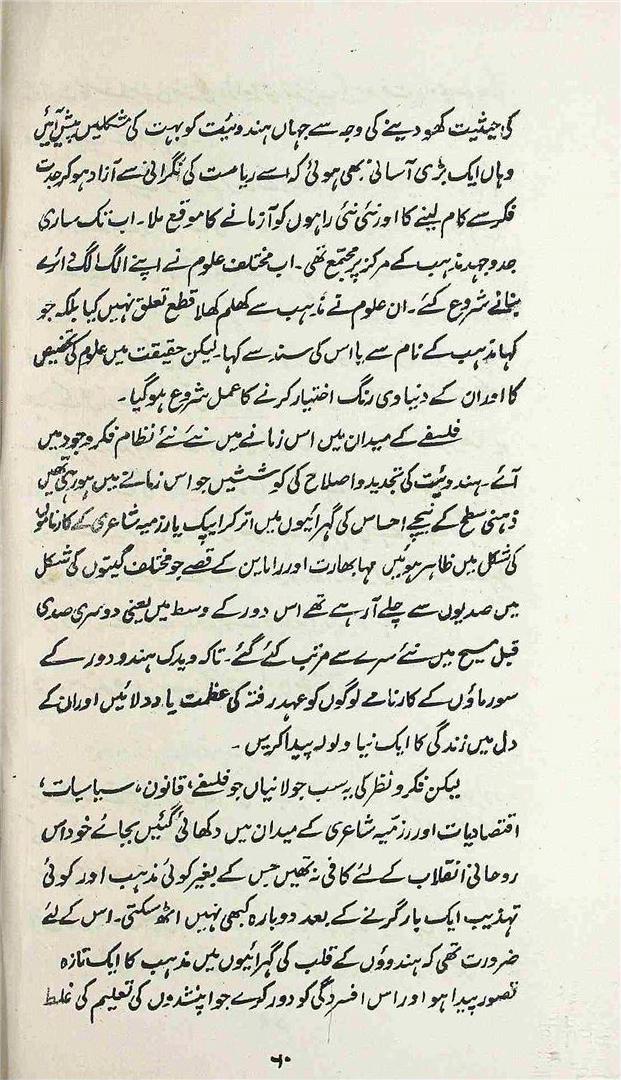 کی حیثیت کھو دینے کی وجہ سے جہاں ہندوئیت کو بہت کی مشکلیں پیش آئیں
وہاں ایک بڑی آسانی بھی ہوئی کہ اسے ریاست کی نگرانی سے آزاد ہو کر جدت
فکر سے کام لینے کا اور نئی نئی راہوں کو آزمانے کا موقع ملا۔ اب تک ساری
جدوجہد مذہب کے مرکز پر مجتمع تھی۔ اب مختلف علوم نے اپنے الگ الگ دائرے
بنانے شروع کئے۔ ان علوم نے مذہب سے کھلم کھلا قطع تعلق نہیں کیا بلکہ جو
کہا مذہب کے نام سے یا اس کی سند سے کہا۔ لیکن حقیقت میں علوم کی تخصیص
کا اور ان کے دنیاوی رنگ اختیار کرنے کا عمل شروع ہو گیا۔
فلسفے کے میدان میں اس زمانے میں نئے نئے نظام فکر وجود میں
آئے۔ ہندوئیت کی تجدید و اصلاح کی کوششیں جو اس زمانے میں ہو رہی تھیں
ذہنی سطح کے نیچے احساس کی گہرائیوں میں اتر کر ایپک یا رزمیہ شاعری کے کارناموں
کی شکل میں ظاہر ہوئیں مہابھارت اور راماین کے قصے جو مختلف گیتوں کی شکل
میں صدیوں سے چلے آ رہے تھے اس دور کے وسط میں یعنی دوسری صدی
قبل مسیح میں نئے سرے سے مرتب کئے گئے۔ تاکہ ویدک ہندو دور کے
سورماؤں کے کارنامے لوگوں کو عہد رفتہ کی عظمت یاد دلائیں اور ان کے
دل میں زندگی کا ایک نیا ولولہ پیدا کریں۔
لیکن فکر و نظر کی یہ سب جولانیاں جو فلسفے، قانون، سیاسیات،
اقتصادیات اور رزمیہ شاعری کے میدان میں دکھائی گئیں بجائے خود اس
روحانی انقلاب کے لئے کافی نہ تھیں جس کے بغیر کوئی مذہب اور کوئی
تہذیب ایک بار گرنے کے بعد دوبارہ کبھی نہیں اٹھ سکتی۔ اس کے لئے
ضرورت تھی کہ ہندوؤں کے قلب کی گہرائیوں میں مذہب کا ایک تازہ
تصور پیدا ہو اور اس افسردگی کو دور کرے جو اپنشدوں کی تعلیم کی غلط
۶۰